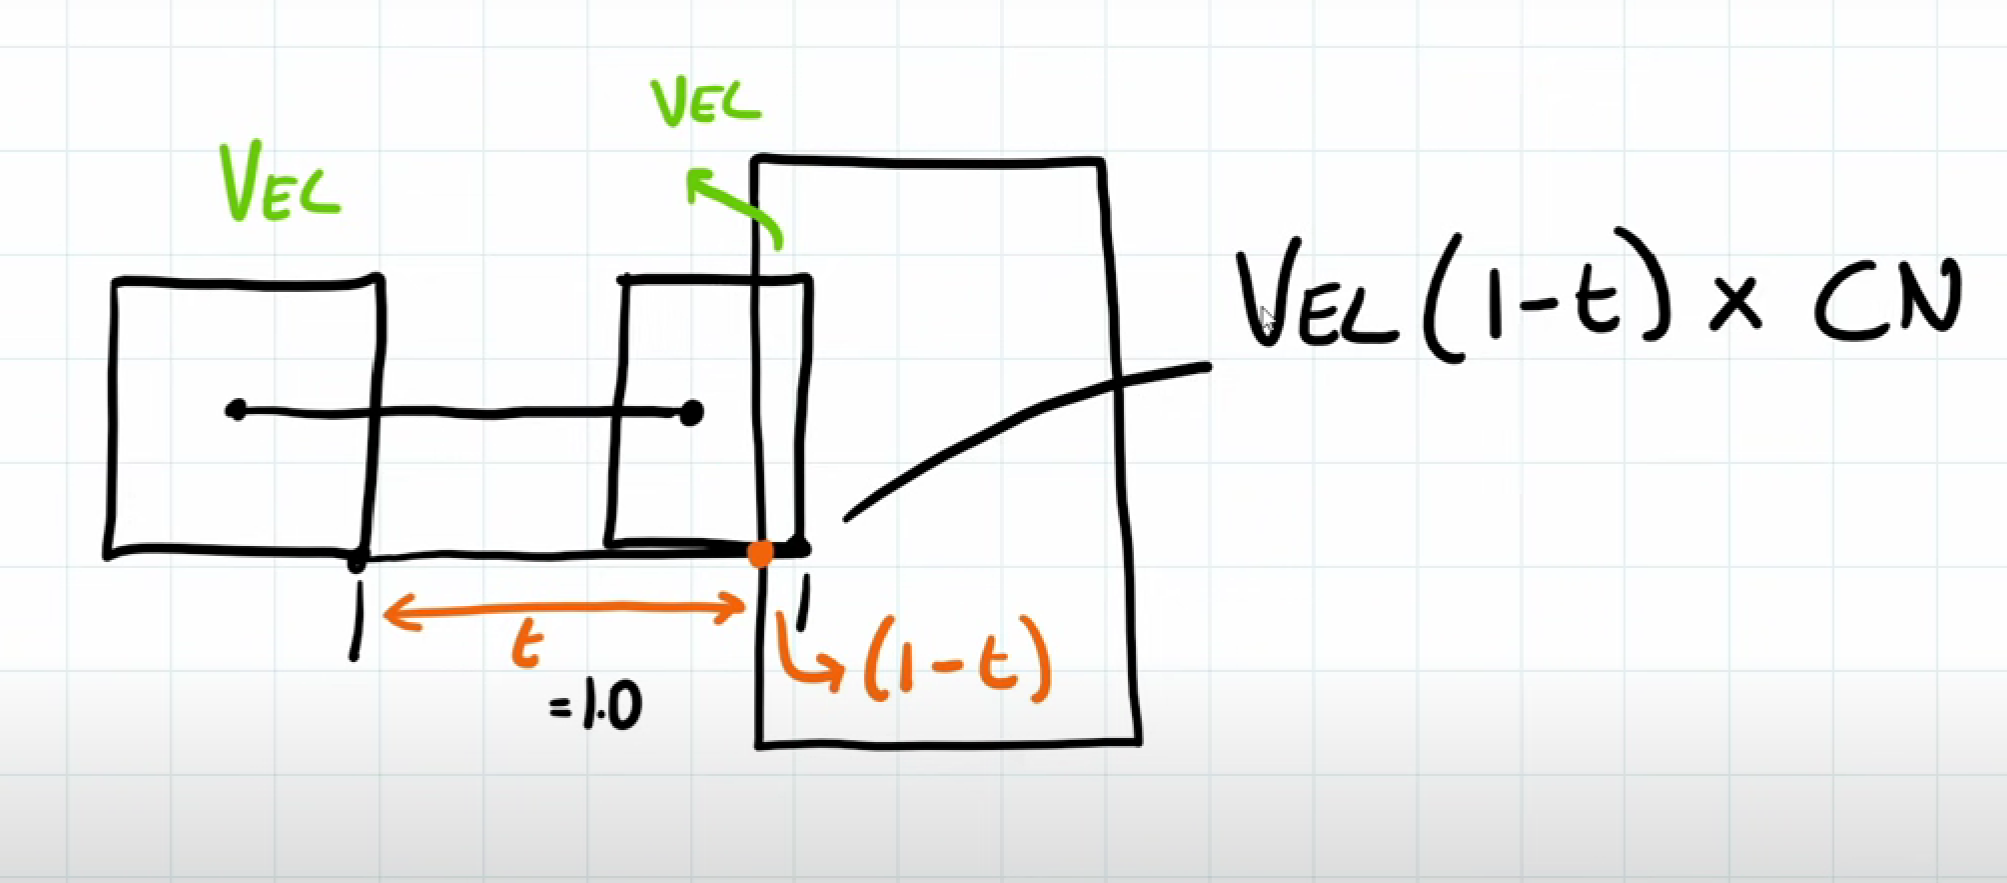 VEL
VEL
VEL(1-t) x CN
t
=1.0
(1-t)